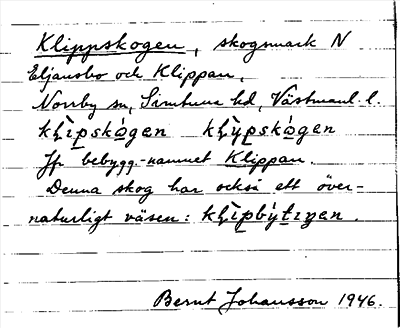 Klippskogen, skogsmark N
Eljansbo och Klippan,
Norrby sn, Simtuna hd, Västmanl. l.
kḷìpskògen kḷỳpskògen
Jfr bebygg.-namnet Klippan.
Denna skog har också ett över-
naturligt väsen: kḷìpbýtiŋen.
Bernt Johansson 1946.